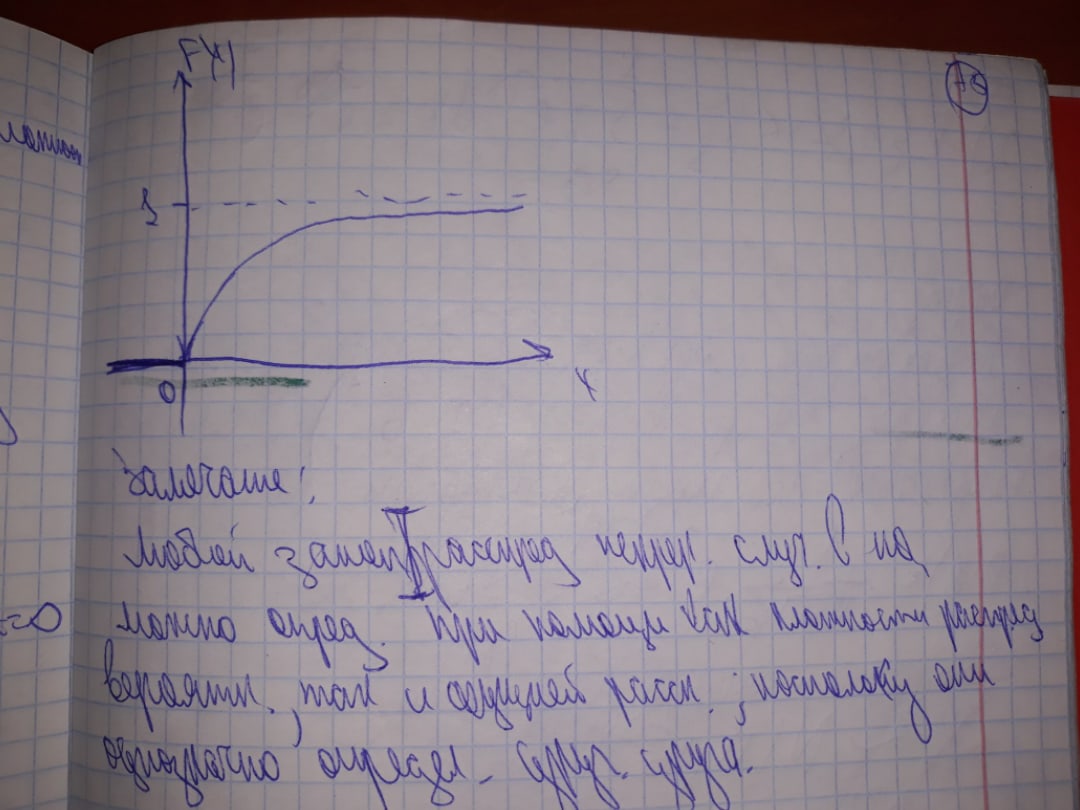 F(x)
1
0
x
Замечание:
Любой закон распред непрер. случ. вел
=0
можно опред. при помощи как плотности распред
вероятн., так и функцией расп.; поскольку они
однозначно определ. друг друга.